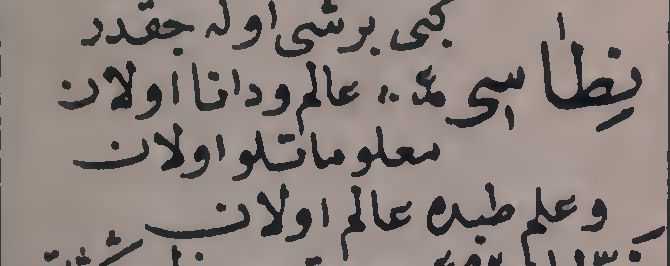 كبى برشى اوله جقدر
نِطَاسى مد عالم ودانا اولان
معلوماتلو اولان
وعلم طبده عالم اولان